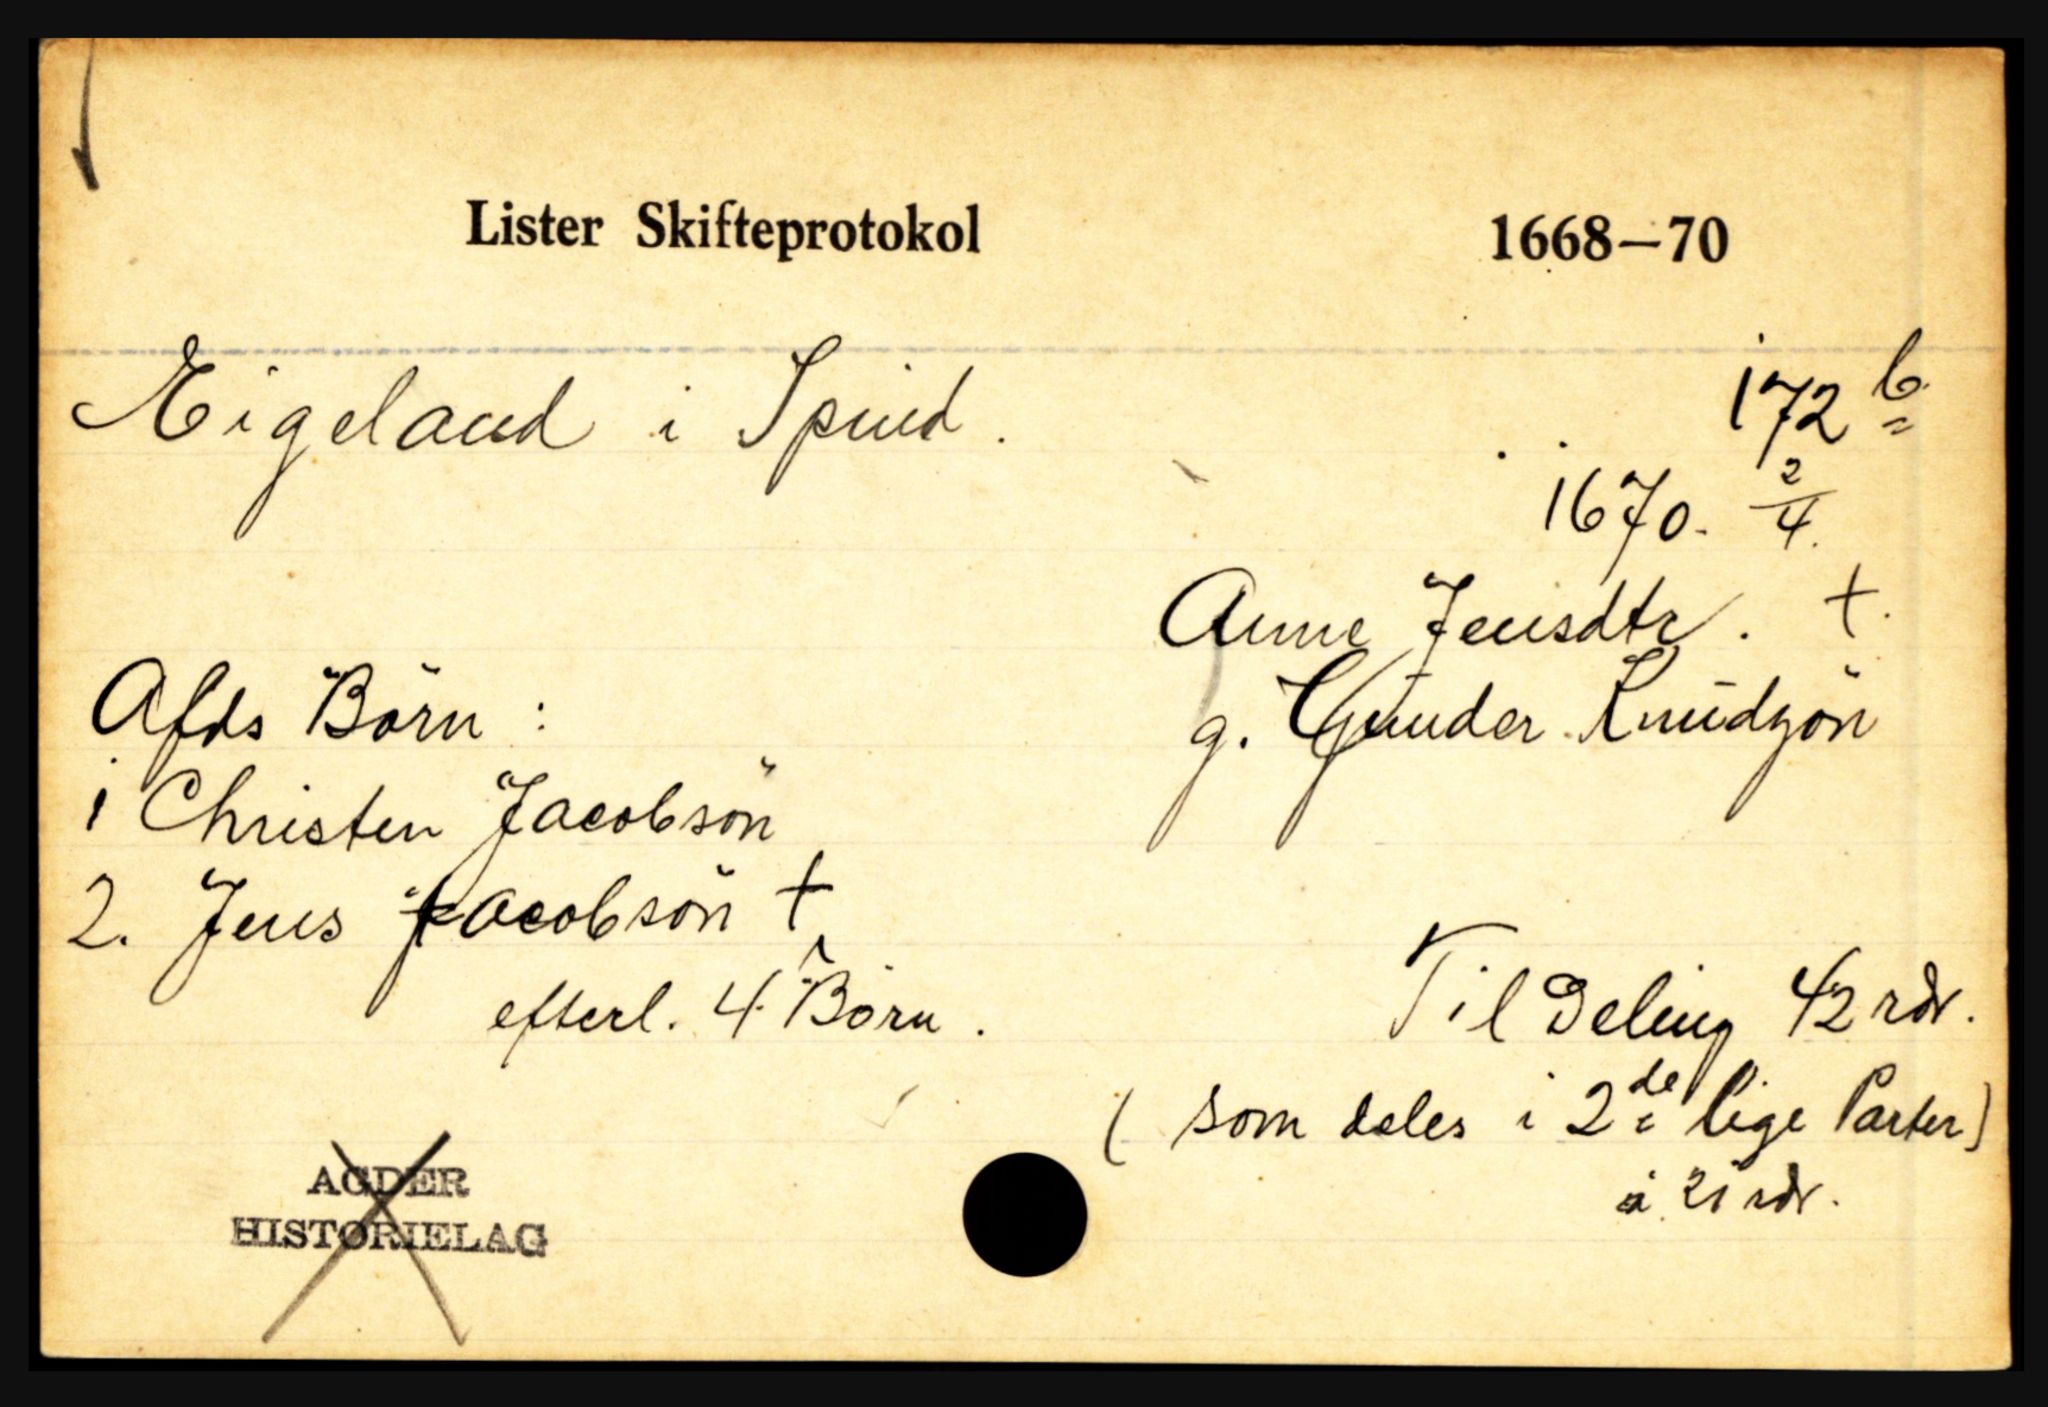 Lister Skifteprotokol 1668—70
Eigeland i Spind. 172 b
1670. 2/4.
Anne Jensdtr. †.
g. Gunder Knudzön
Afds Börn :
1 Christen Jacobsön
2. Jens Jacobsön †
efterl. 4 Börn.
Til Deling 42 rdr.
( som deles i 2de lige Parter)
à 21 rdr.
AGDER
HISTORIELAG